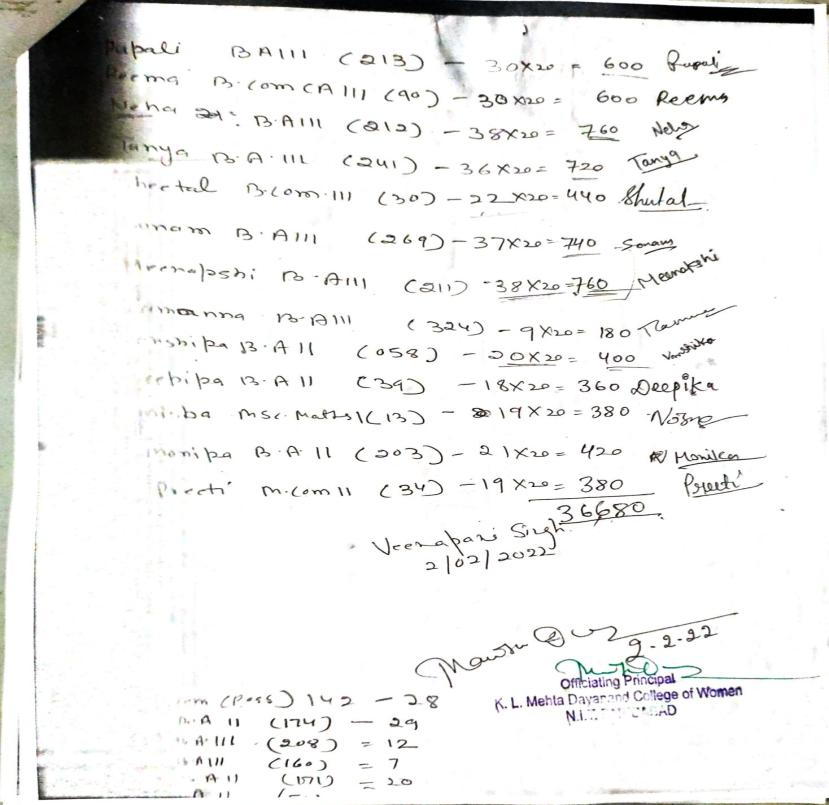 Rupali B A III (213) - 30x20 = 600 Rupali
Reema B.Com CA III (90) - 30x20 = 600 Reema
Neha B.A III (212) - 38x20 = 760 Neha
Tanya B.A. III (241) - 36x20 = 720 Tanya
heetal B.Com. III (30) - 22x20 = 440 Shutal
nam B.A III (269) - 37x20 = 740 Sonam
Meenakshi B.A III (211) - 38x20 = 760 Meenakshi
amanna B.A III (324) - 9x20 = 180
nshika B.A II (058) - 20x20 = 400 Vanshika
eepika B.A II (39) - 18x20 = 360 Deepika
ba MSc. Maths I (13) - 19x20 = 380
monika B.A II (203) - 21x20 = 420 Monika
Preeti M.Com II (34) - 19x20 = 380 Preeti
36680
Veenapani Singh
2/02/2022
2-2-22
Officiating Principal
K. L. Mehta Dayanand College of Women
om (Pass) 142 - 28
B.A II (174) - 29
A.III (208) = 12
A III (160) = 7
A II (171) = 20
A II